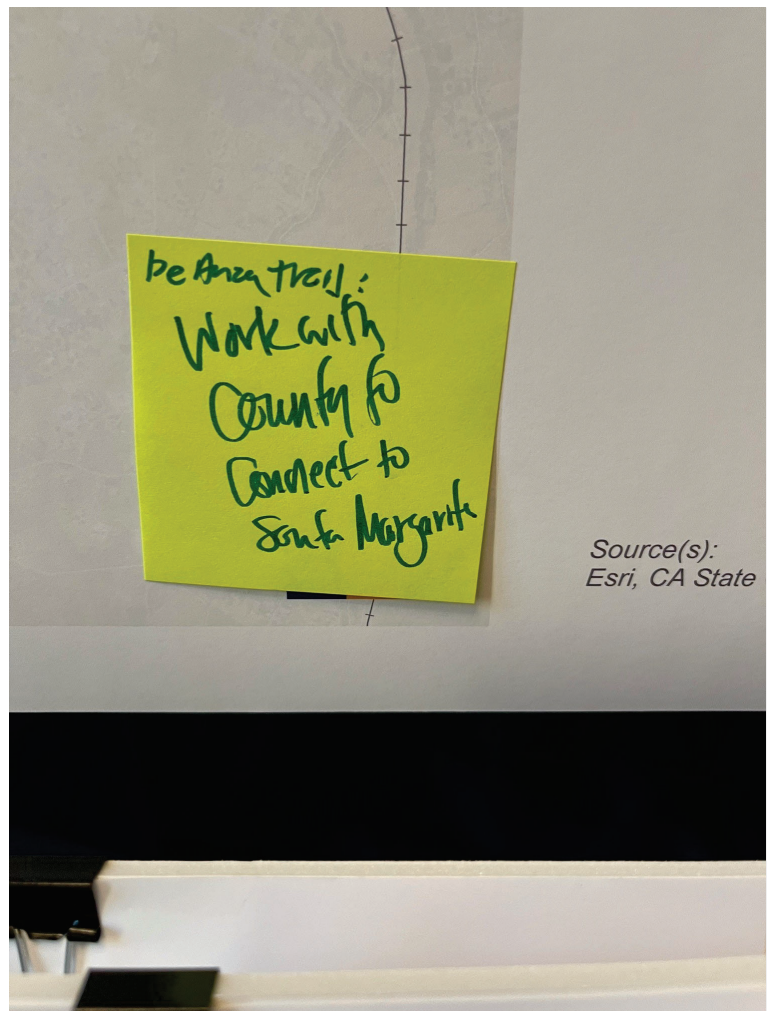 De Anza trail:
Work with
County to
Connect to
Santa Margarita
Source(s):
Esri, CA State